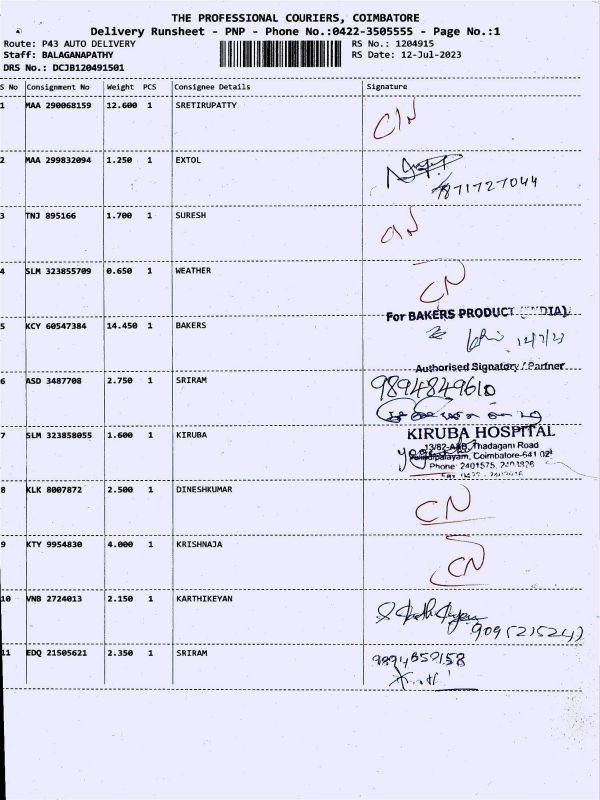 THE PROFESSIONAL COURIERS, COIMBATORE
Delivery Runsheet - PNP - Phone No.:0422-3505555 - Page No.:1
Route: P43 AUTO DELIVERY RS No.: 1204915
Staff: BALAGANAPATHY RS Date: 12-Jul-2023
DRS No.: DCJB120491501
S No Consignment No Weight PCS Consignee Details Signature
1 MAA 290068159 12.600 1 SRETIRUPATTY CN
2 MAA 299832094 1.250 1 EXTOL
9871727044
3 TNJ 895166 1.700 1 SURESH CN
4 SLM 323855709 0.650 1 WEATHER CN
For BAKERS PRODUCT (INDIA)
5 KCY 60547384 14.450 1 BAKERS
Authorised Signatory / Partner
6 ASD 3487708 2.750 1 SRIRAM 9894849610
7 SLM 323858055 1.600 1 KIRUBA KIRUBA HOSPITAL
Thadagam Road
Coimbatore-641 02
Phone: 2401575,
8 KLK 8007872 2.500 1 DINESHKUMAR CN
9 KTY 9954830 4.000 1 KRISHNAJA CN
10 VNB 2724013 2.150 1 KARTHIKEYAN
11 EDQ 21505621 2.350 1 SRIRAM